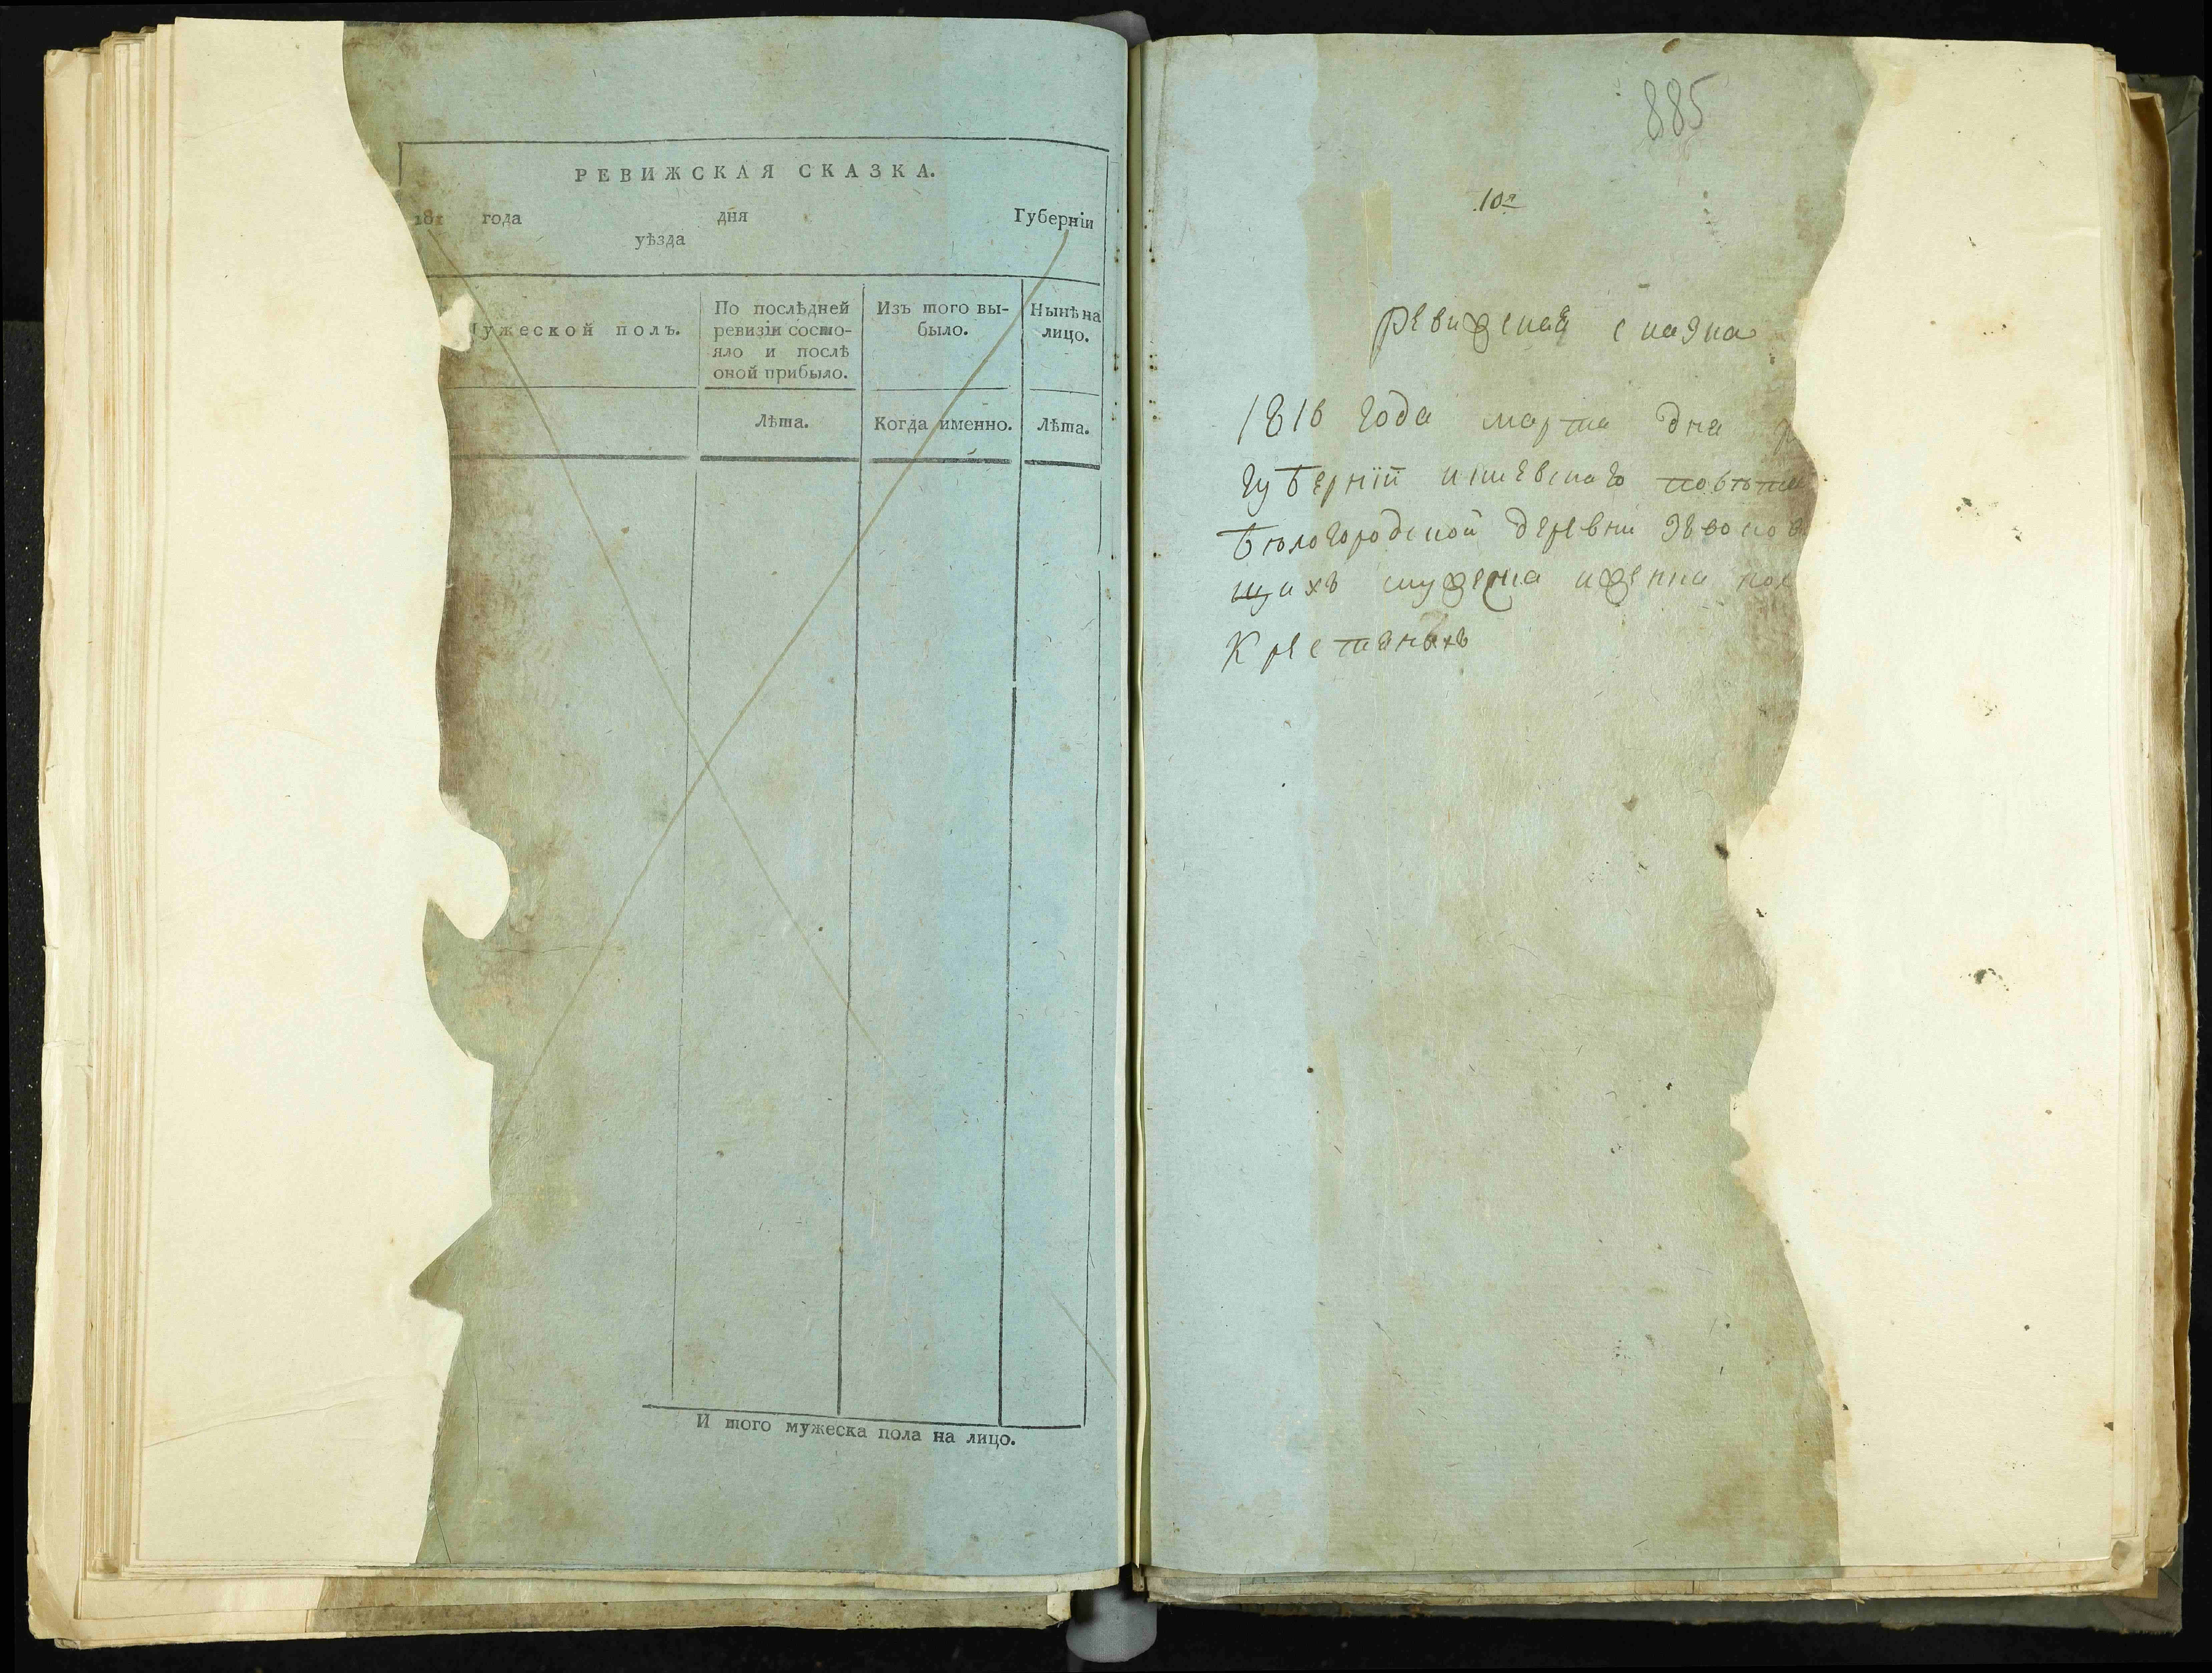 РЕВИЖСКАЯ СКАЗКА.
181 года дня Губернїи
уѣзда
Мужеской полъ.
По послѣдней ревизїи состо-яло и послѣ оной прибыло.
Изъ того вы-было.
Нынѣ на лицо.
Лѣта.
Когда именно.
Лѣта.
И того мужеска пола на лицо.
885
10я
ревиская скаска
1816 года марта дня
губернїй киевскаго повѣта
бѣлогородской деревни звонков
щихъ мужеска иженска пол
Крестянахъ